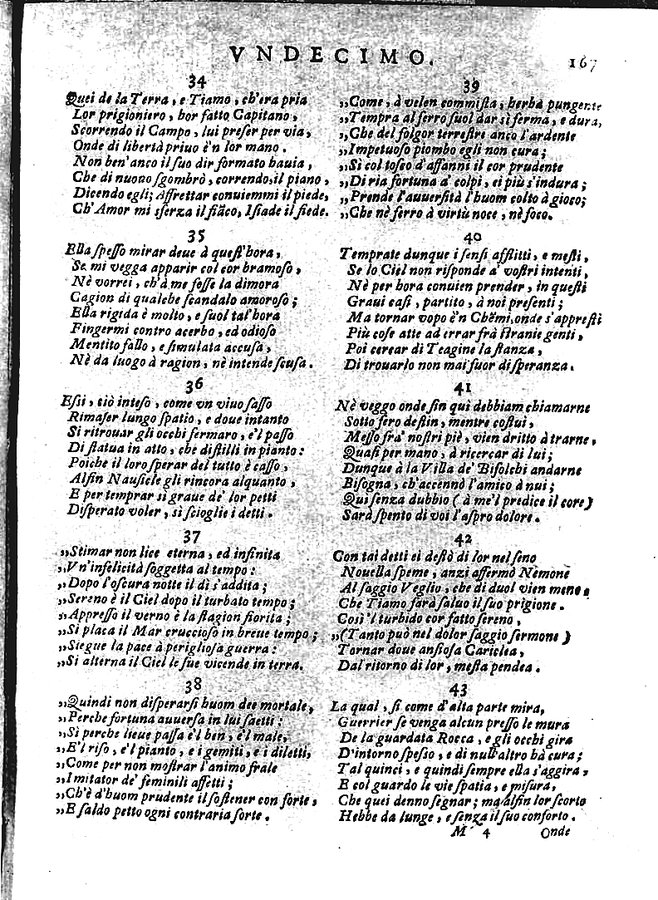 VNDECIMO.
167
34
Quei de la Terra, e Tiamo, ch'era pria
Lor prigioniero, hor fatto Capitano,
Scorrendo il Campo, lui preser per via,
Onde di libertà priuo è'n lor mano.
Non ben'anco il suo dir formato hauia,
Che di nuouo sgombrò, correndo, il piano,
Dicendo egli; Affrettar conuiemmi il piede,
Ch'Amor mi sferza il fiãco, Isiade il fiede.
35
Ella spesso mirar deue à quest'hora,
Se mi vegga apparir col cor bramoso,
Nè vorrei, ch'à me fesse la dimora
Cagion di qualche scandalo amoroso;
Ella rigida è molto, e suol tal'hora
Fingermi contro acerbo, ed odioso
Mentito fallo, e simulata accusa,
Nè da luogo à ragion, nè intende scusa.
36
Essi, ciò inteso, come vn viuo sasso
Rimaser lungo spatio, e doue intanto
Si ritrouar gli occhi fermaro, e'l passo
Di statua in atto, che distilli in pianto:
Poiche il loro sperar del tutto è casso,
Alfin Nausicle gli rincora alquanto,
E per temprar si graue de' lor petti
Disperato voler, si scioglie i detti.
37
„Stimar non lice eterna, ed infinita
„Vn'infelicità soggetta al tempo:
„Dopo l'oscura notte il dì s'addita;
„Sereno è il Ciel dopo il turbato tempo;
„Appresso il verno è la stagion fiorita;
„Si placa il Mar cruccioso in breue tempo;
„Siegue la pace à perigliosa guerra:
„Si alterna il Ciel le sue vicende in terra.
38
„Quindi non disperarsi huom dee mortale,
„Perche fortuna auuersa in lui saetti;
„Si perche lieue passa è'l ben, è'l male,
„E'l riso, e'l pianto, e i gemiti, e i diletti,
„Come per non mostrar l'animo frale
„Imitator de' feminili affetti;
„Ch'è d'huom prudente il sostener con forte,
„E saldo petto ogni contraria sorte.
39
„Come, à velen commista, herba pungente
„Tempra al ferro suol dar sì ferma, e dura,
„Che del folgor terrestre anco l'ardente
„Impetuoso piombo egli non cura;
„Si col tosco d'affanni il cor prudente
„Di ria fortuna à' colpi, ei più s'indura;
„Prende l'auuersità l'huom colto à gioco;
„Che nè ferro à virtù noce, nè foco.
40
Temprate dunque i sensi afflitti, e mesti,
Se lo Ciel non risponde à' vostri intenti,
Nè per hora conuien prender, in questi
Graui casi, partito, à noi presenti;
Ma tornar vopo è'n Chẽmi, onde s'appresti
Più cose atte ad errar frà stranie genti,
Poi cercar di Teagine la stanza,
Di trouarlo non mai fuor di speranza.
41
Nè veggo onde sin quì debbiam chiamarne
Sotto fero destin, mentre costui,
Messo frà' nostri piè, vien dritto à trarne,
Quasi per mano, à ricercar di lui;
Dunque à la Villa de' Bifolchi andarne
Bisogna, ch'accennò l'amico à nui;
Qui senza dubbio (à me'l predice il core)
Sarà spento di voi l'aspro dolore.
42
Con tai detti ei destò di lor nel seno
Nouella speme, anzi affermò Nemone
Al saggio Veglio, che di duol vien meno,
Che Tiamo sarà saluo il suo prigione.
Così'l turbido cor fatto sereno,
„(Tanto può nel dolor saggio sermone)
Tornar doue ansiosa Cariclea,
Dal ritorno di lor, mesta pendea.
43
La qual, sì come d'alta parte mira,
Guerrier se venga alcun presso le mura
De la guardata Rocca, e gli occhi gira
D'intorno spesso, e di null'altro hà cura;
Tal quinci, e quindi sempre ella s'aggira,
E col guardo le vie spatia, e misura,
Che quei denno segnar; ma alfin lor scorto
Hebbe da lunge, e senza il suo conforto.
M 4
Onde